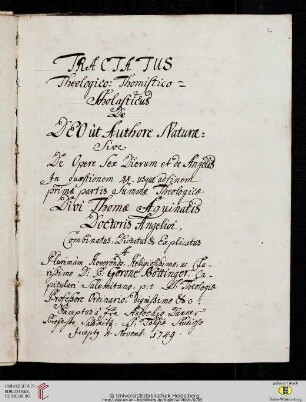 TRACTATUS
Theologico: Thomistico =
Scholasticus
De
DEO ut Authore Naturae.
Sive
De Opere Sex Dierum et de Angelis
In Quaestionem usque ad finem
primae partis Summae Theologicae
Divi Thomae Aquinatis
Doctoris Angelici,
Combinatus, Dictatus & Explicatus
A
Plurimum Reverendo, Religiosissimo, ac Cla-
rissimo D: P. Böttinger, Ca-
pitulari p: t: Theologiae
Professore Ordinario, Dignissimo &c
Exceptus a Fre Ambrosio
Professo
Incepty Novemb. 1749.
© Universitätsbibliothek Heidelberg
UNIVERSITÄTS-
BIBLIOTHEK
HEIDELBERG